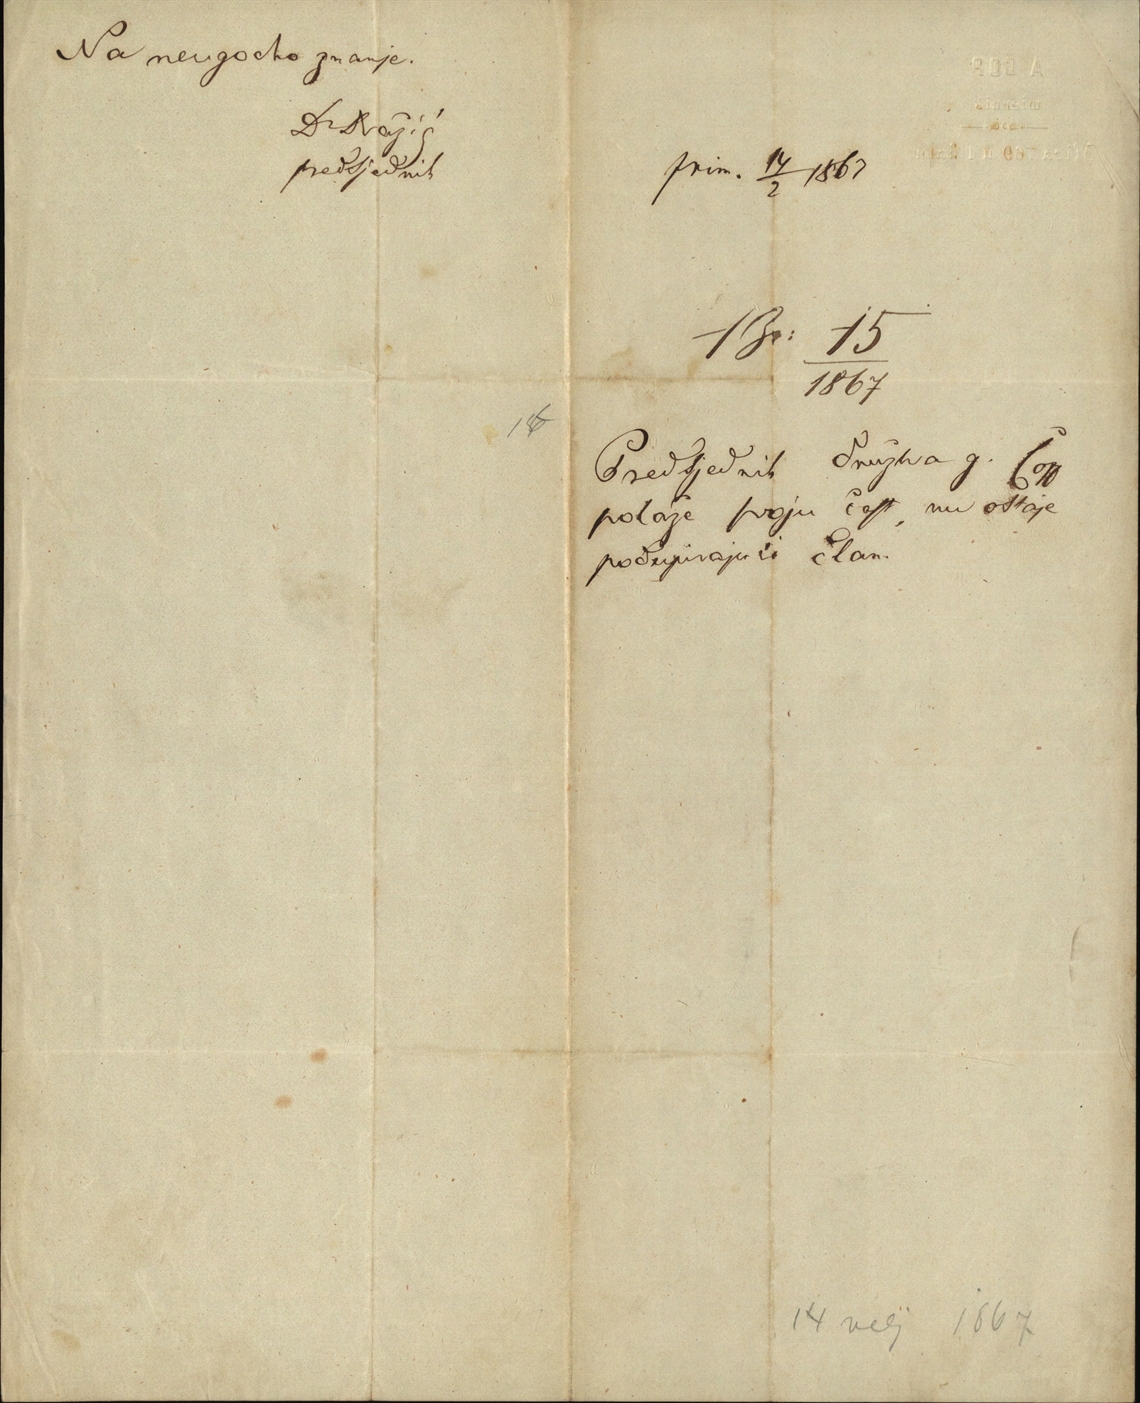 Na neugodno znanje.
Dr Dražić
predsjednik
prim. 14/2 1867
Br: 15/1867
Predsjednik družtva g. Čop
polaže svoju čast, nu ostaje
podupirajući član.
14 velj 1867